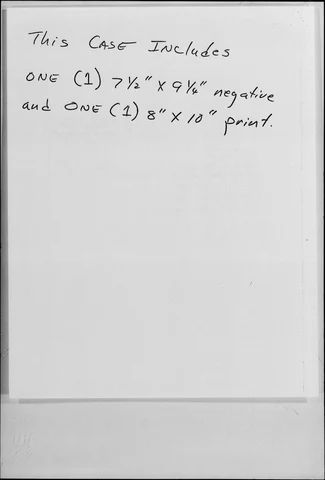 This CASE INCludes
ONE (1) 7½" X 9¼" negative
and ONE (1) 8" X 10" print.